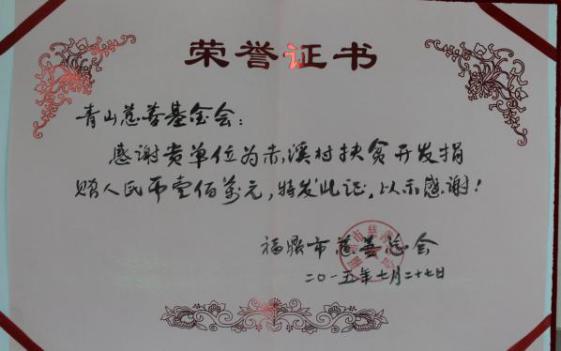 荣誉证书
青山慈善基金会：
感谢贵单位为赤溪村扶贫开发捐
赠人民币壹佰万元，特发此证，以示感谢！
福鼎市慈善总会
二〇一五年七月二十七日